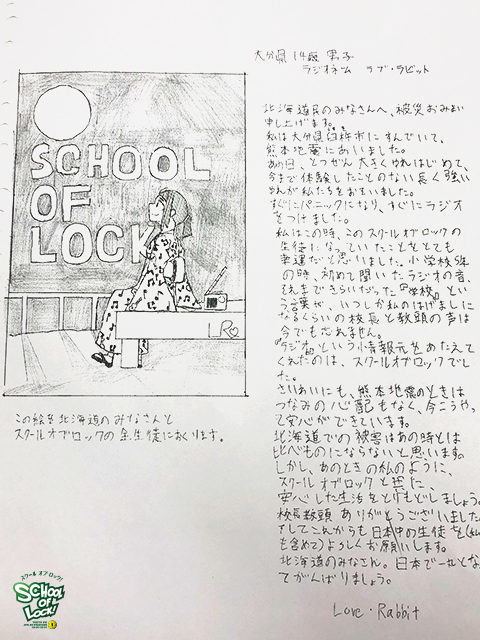 大分県 14歳 男子
ラジオネーム ラブ・ラビット
SCHOOL
OF
LOCK
北海道民のみなさんへ、被災お見まい
申し上げます。
私は大分県臼杵市にすんでいて、
熊本地震にあいました。
あの日、とつぜん大きくゆれはじめて、
今まで体験したことのない長く強い
ゆれが私たちをおそいました。
すぐにパニックになり、すぐにラジオ
をつけました。
私はこの時、このスクールオブロックの
生徒になっていたことをとても
幸運だと思いました。小学校5年
の時、初めて聞いたラジオの音、
それまできらいだった『学校』とい
う言葉が、いつしか私のはげましに
なるくらいの校長と教頭の声は
今でも忘れません。
『ラジオ』という情報元をあたえて
くれたのは、スクールオブロックでし
た。
さいわいにも、熊本地震のときは
つなみの心配もなく、今こうやっ
て安心ができています。
北海道での被害はあの時とは
比べものにならないと思います。
しかし、あのときの私のように、
スクールオブロックと共に、
安心した生活をとりもどしましょう。
校長教頭 ありがとうございました
そしてこれからも日本中の生徒を(私
も含めて)よろしくお願いします。
北海道のみなさん。日本で一丸となっ
てがんばりましょう。
Love・Rabbit
この絵を北海道のみなさんと
スクールオブロックの全生徒におくります。
スクール オブ ロック!
SCHOOL
OF
LOCK!